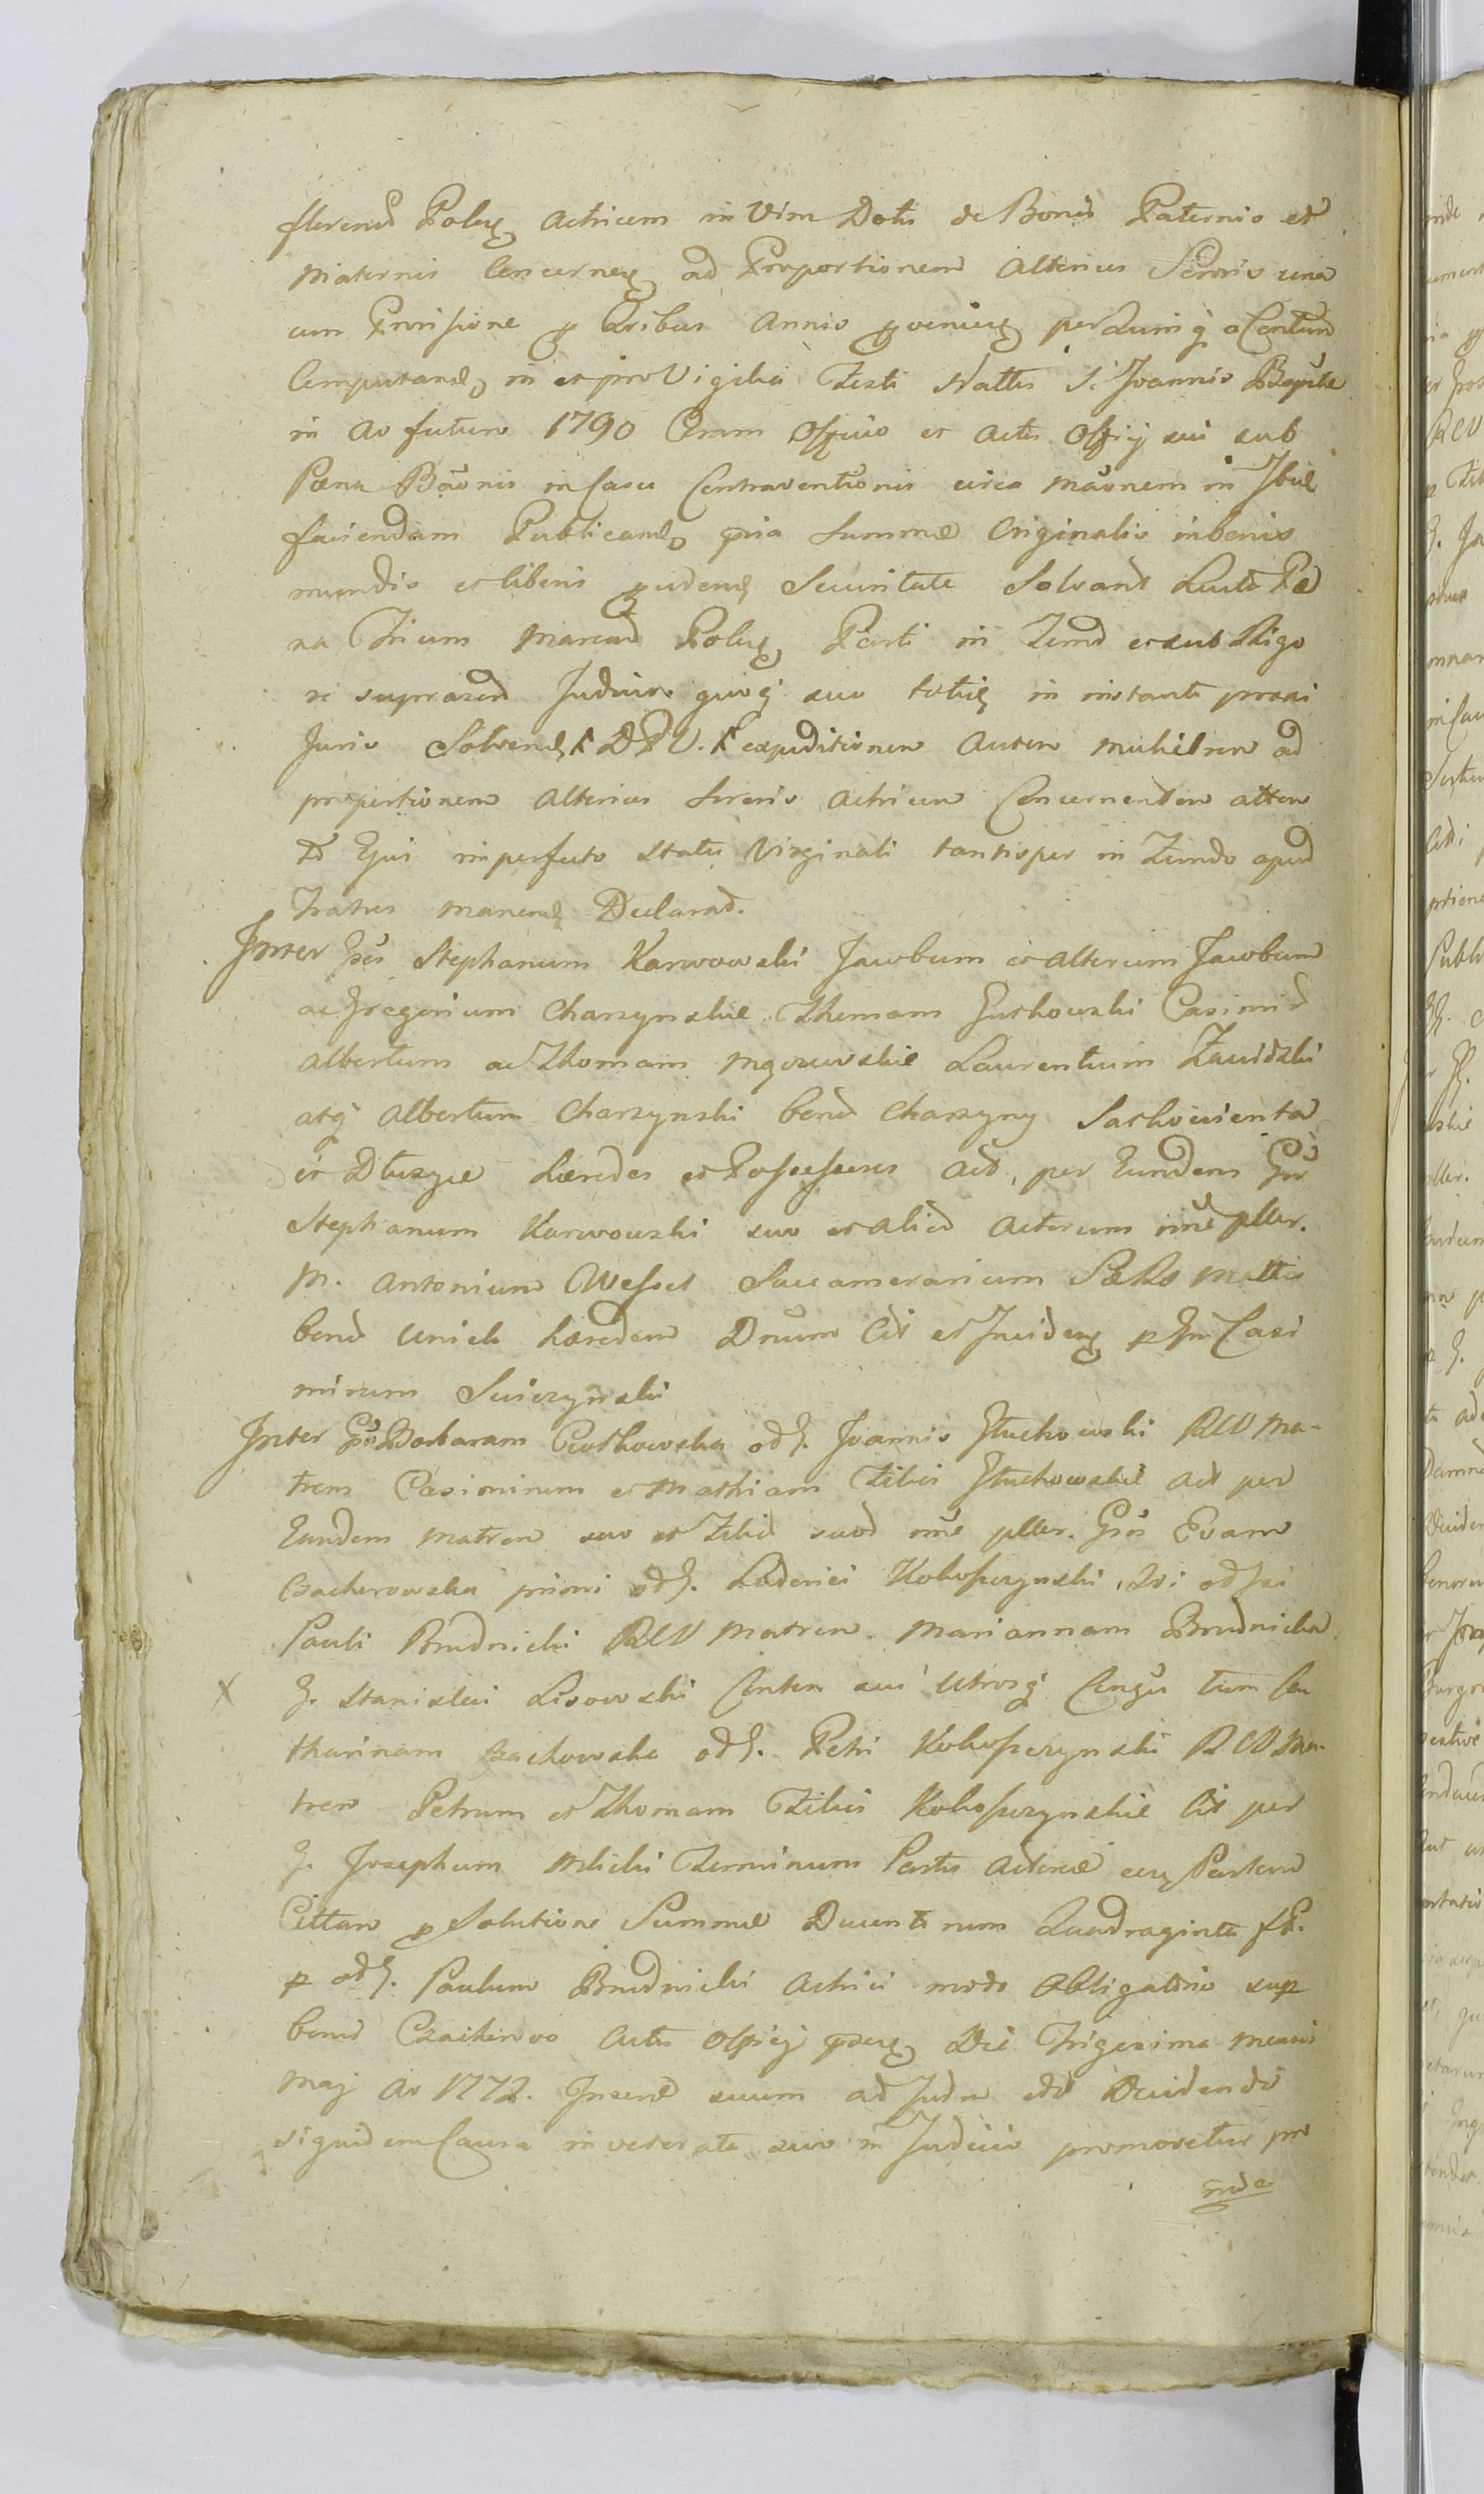 florenos Polles Actricem in Vim Dotis de Bonis Paternis et
Maternis Concernen ad Proportionem Alterius Sororis una
cum Provisione p Tribus Annis provenien per Quinq a Centum
Computand in et pro Vigilia Festi Nattis S. Joannis Baptte
in Ao futuro 1790 Coram Officio et Actis Officij sui sub
Pœna Bañonis in Casu Contraventionis circa mañonem in Jbus
faciendam Publicand pria Summæ Originalis in bonis
mundis et liberis Securitate Solvant Luita Pœ
na Trium Marcar Poller Parti in Fund et sub Rigo
re suprascrip Judicio quoq suo in instanti
Juris Solvend. DPV. expeditionem Autem muliebrem ad
proportionem Alterius Sororis Actricem Concernentem atten
to Ejus imperfecto Statu Virginali tantisper in Fundo apud
Fratres manend Declarat.
Inter Gsos Stephanum Karwowski Jacobum et alterum Jacobum
ac Gregorium Charzynskie Thomam Gutkowski Casimir
Albertum ac Thomam Mgowskie Laurentium Zawidzki
atq Albertum Charzynski bonor Charzyny Sachocienta
et Dłuzyce Hæredes et Possessores Act, per Eundem Gsm
Stephanum Karwowski suo et alior Actorum nne pller.
M. Antonium Wessel Succamerarium Sacræ Mattis
bonor Unick Hæredem Dnum Cit et Inciden p Gm Casi
mirum Swiezynski
Inter Gsos Barbaram Ciotkowska od G. Joannis Głuchowski RCV Ma-
trem Casimirum et Mathiam Filios Głuchowskie Act per
Eandem Matrem suo et Filior suor nne pller. Gsos Evam
Czacherowska primi od G. Ludovici Kokoszczynski, 2di od Gsi
Pauli Brudnicki RCV Matrem Mariannam Brudnicka
G. Stanislai Lisowski Conten sui utrosq Congu tum Ca
tharinam Czachowska od G. Petri Kokoszczynski RCV Ma-
trem Petrum et Thomam Filios Kokoszczynskie Cit per
G. Josephum Milicki Terminum Partis Actoreæ erg Partem
Cittam p Solutione Summæ Ducentorum Quadraginta fP.
p od G. Paulum Brudnicki Actrici modo Obligatorio sup
bonis Czacherowo Actis Officij prsen Die Trigesima Mensis
Maj Ao 1772. Inscrip suum ad Judm Decidendo
siquidem Causa in veterata suo in Judicio promovetur pro
inde